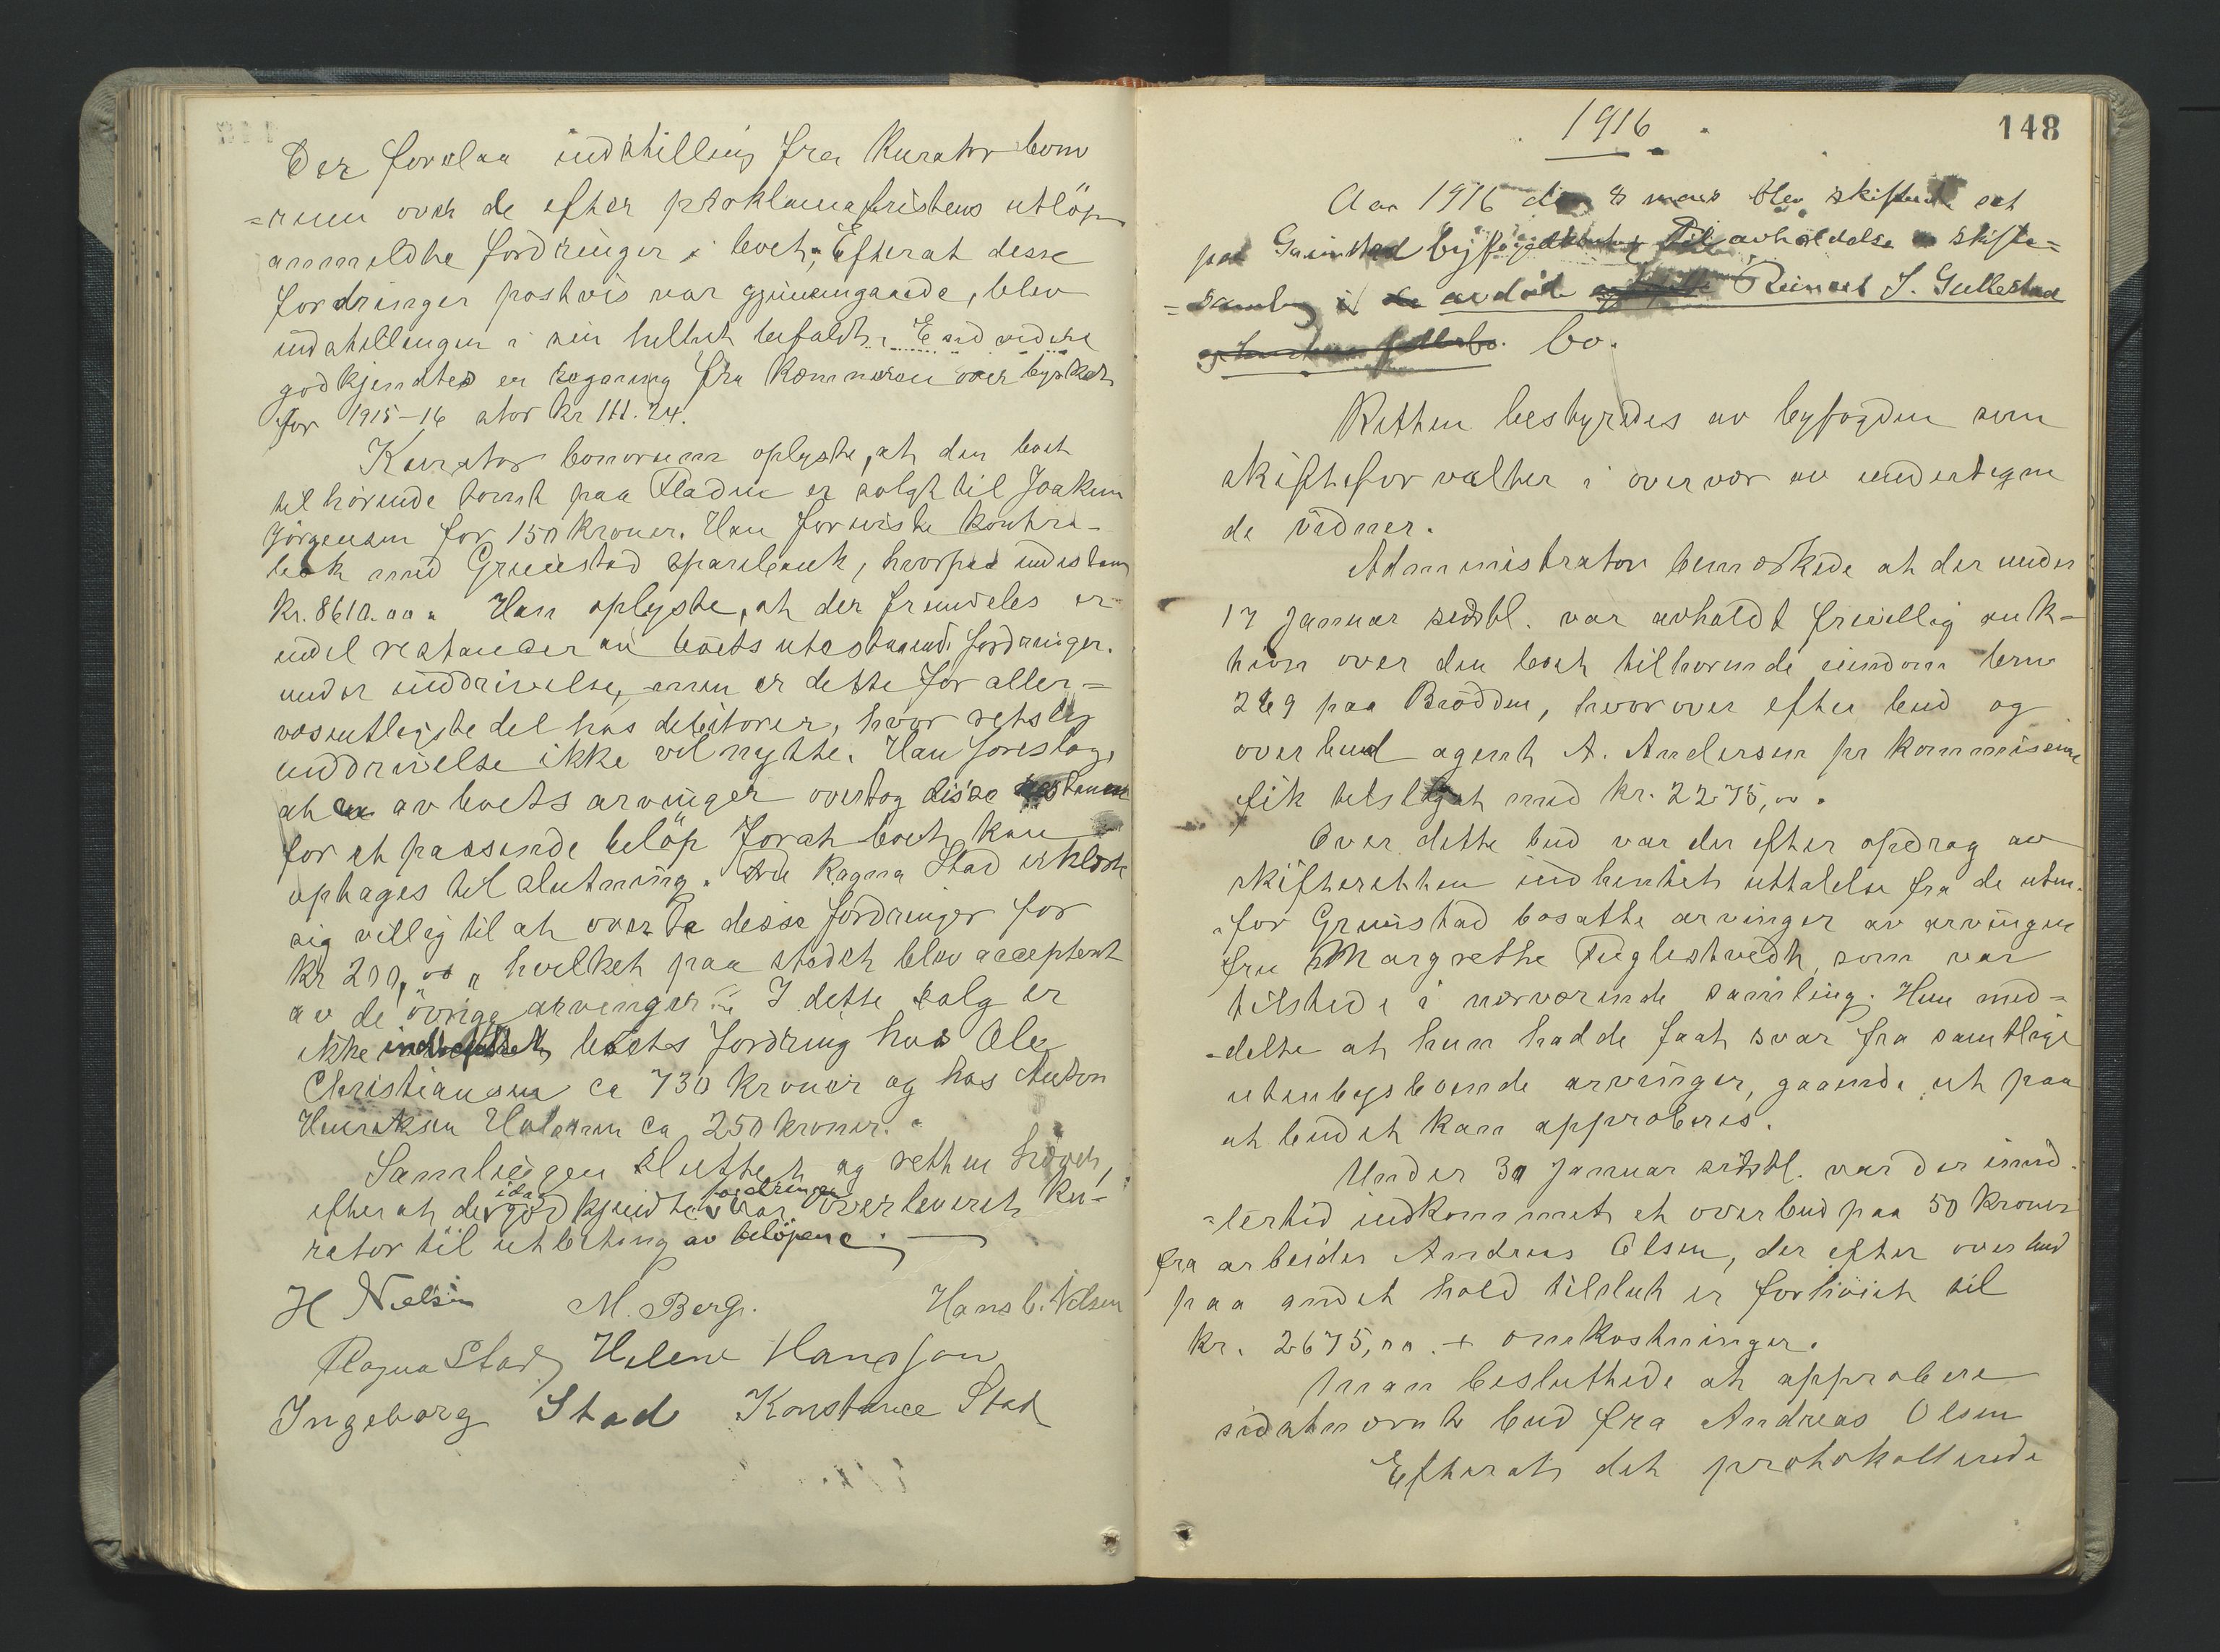 Der forelaa indstilling fra Kurator bono
=rum over de efter proklamafristens utlöp
anmeldte fordringer i boet. Efterat desse
fordringer postvis var gjennemgaaede, blev
indstillingen i sin helhet bifaldt. End videre
godkjendtes en regning fra Kæmneren over byskat
for 1915-16 stor kr 111.24.
Kurator bonorum oplyste, at den boet
tilhörende tomt paa Fladen er solgt til Joakim
Jörgensen for 150 kroner. Han foreviste kontra-
bok med Grimstad Sparebank, hvorpaa indestaar
kr. 8610.00. Han oplyste, at der fremdeles er
endel restancer av boets utestaaende fordringer
under inddrivelse, men er dette for aller=
væsentligste del hos debitorer, hvor retslig
inddrivelse ikke vil nytte. Han foreslog,
at en av boets arvinger overtog disse restancer
for et passende belöp forat boet kan
optages til slutning. Frk Ragna Stad erklærte
sig villig til at overta desse fordringer for
kr 200,00, hvilket paa stedet blev acceptert
av de övrige arvinger. I dette salg er
ikke indbefattet boets fordring hos Ole
Christiansen ca 730 kroner og hos Anton
Henriksen ca 250 kroner.
Samlingen sluttet og retten hævet,
efterat de idag godkjendte fordringer var overleveret Ku-
rator til utbetaling av belöpene.
H Nielsen M. Berg. Hans C. Nilsen
Ragna Stad Helene Hansson
Ingeborg Stad Konstance Stad
1916
148
Aar 1916 den 8 mars blev skifteret sat
paa Grimstad byfogedkontor til avholdelse av skifte=
=samling i avdöde Reinert J. Gullestad
bo.
Retten bestyredes av byfogden som
skifteforvalter i overvær av undertegne
de vidner.
Administrator bemærkede at der under
17 Januar sidstl. var avholdt frivillig auk-
tion over den boet tilhörende eiendom brno
269 paa Brödden, hvorover efter bud og
overbud agent A. Andersen pr kommission
fik tilslaget med kr. 2275,00.
Over dette bud var der efter opdrag av
skifteretten indhentet uttalelse fra de uten-
for Grimstad bosatte arvinger av arvingen
fru Margrethe Fuglestvedt, som var
tilstede i nærværende samling. Hun med=
-delte at hun hadde faat svar fra samtlige
utenbysboende arvinger, gaaende ut paa
at budet kan approberes.
Under 30 Januar sidstl. var der imid-
=lertid indkommet et overbud paa 50 kroner
fra arbeider Andreas Olsen, der efter overbud
paa andet hold tilslut er forhöiet til
kr. 2675,00. + omkostninger.
Man besluttede at approbere
sidstnævnte bud fra Andreas Olsen
Efterat det protokollerede